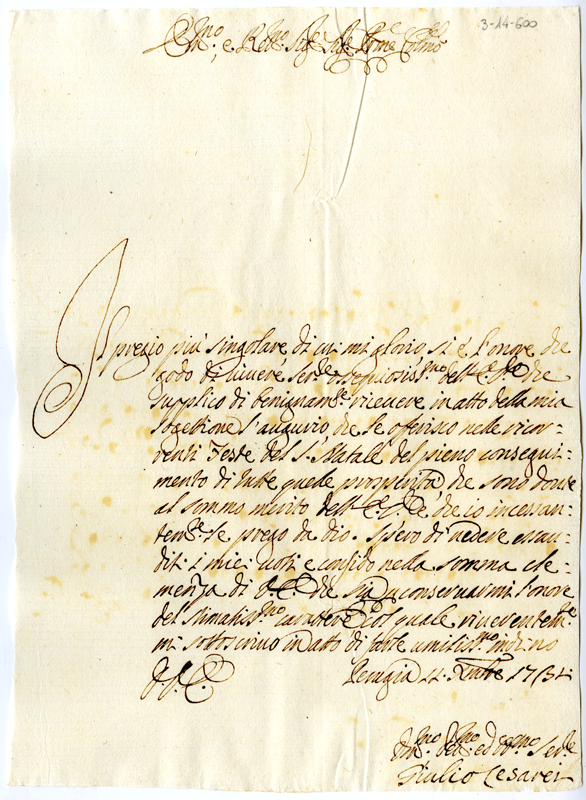 3-14-600
Em.mo, e Rev.mo Sig.re Sig.re P.rone Col.mo
Il pregio più singolare di cui mi glorio, si è l'onore che
godo di vivere Ser.re ossequiosiss.mo dell' E. V. che
supplico di benignam.te ricevere in atto della mia
sogettione l'augurio, che le offerisco nelle ricor-
renti Feste del S. Natale del pieno consegui-
mento di tutte quelle prosperità, che sono dovute
al sommo merito dell' E. V. e che io incessan-
tem.te le prego da Dio. Spero di vedere esau-
diti i miei voti e confido nella somma cle-
menza di V. E. che sia p conservarmi l'onore
del stimatiss.mo carattere col quale riverentem.te
mi sottoscrivo in atto di farle umiliss.mo inchino
D. V. E.
Perugia 22. Xmbre 1731
Um.mo Dev.mo ed Obb.mo Ser.re
Giulio Cesarei